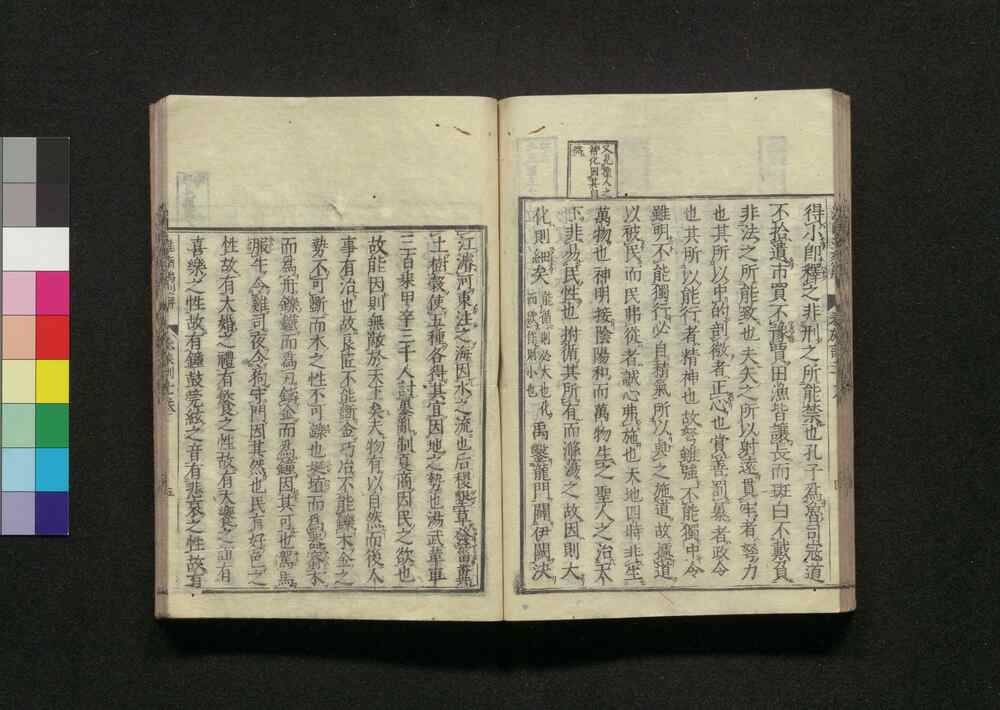 又見聖人之
神化因其自
得小即釋之非刑之所能禁也孔子爲魯司寇道
不拾遺市買不豫賈田漁皆讓長而斑白不戴負
非法之所能致也夫矢之所以射遠貫牢者弩力
也其所以中的剖微者正心也賞善罰暴者政令
也其所以能行者精神也故弩雖強不能獨中令
雖明不能獨行必自精氣所以與之施道故攄道
以被民而民弗從者誠心弗施也天地四時非生
萬物也神明接陰陽和而萬物生之聖人之治天
下非易民性也拊循其所有而滌蕩之故因則大
化則細矣能循則必大也化而欲作則小也禹鑿龍門闢伊闕決
江濬河東注之海因水之流也后稷墾草發菑糞
土樹穀使五種各得其宜因地之勢也湯武革車
三百乘甲卒三千人討暴亂制夏商因民之欲也
故能因則無敵於天下矣夫物有以自然而後人
事有治也故良匠不能斲金巧冶不能鑠木金之
勢不可斲而木之性不可鑠也埏埴而爲器窬木
而爲舟鑠鐵而爲刃鑄金而爲鐘因其可也駕馬
服牛令雞司夜令狗守門因其然也民有好色之
性故有大婚之禮有飲食之性故有大饗之誼有
喜樂之性故有鐘鼓筦絃之音有悲哀之性故有